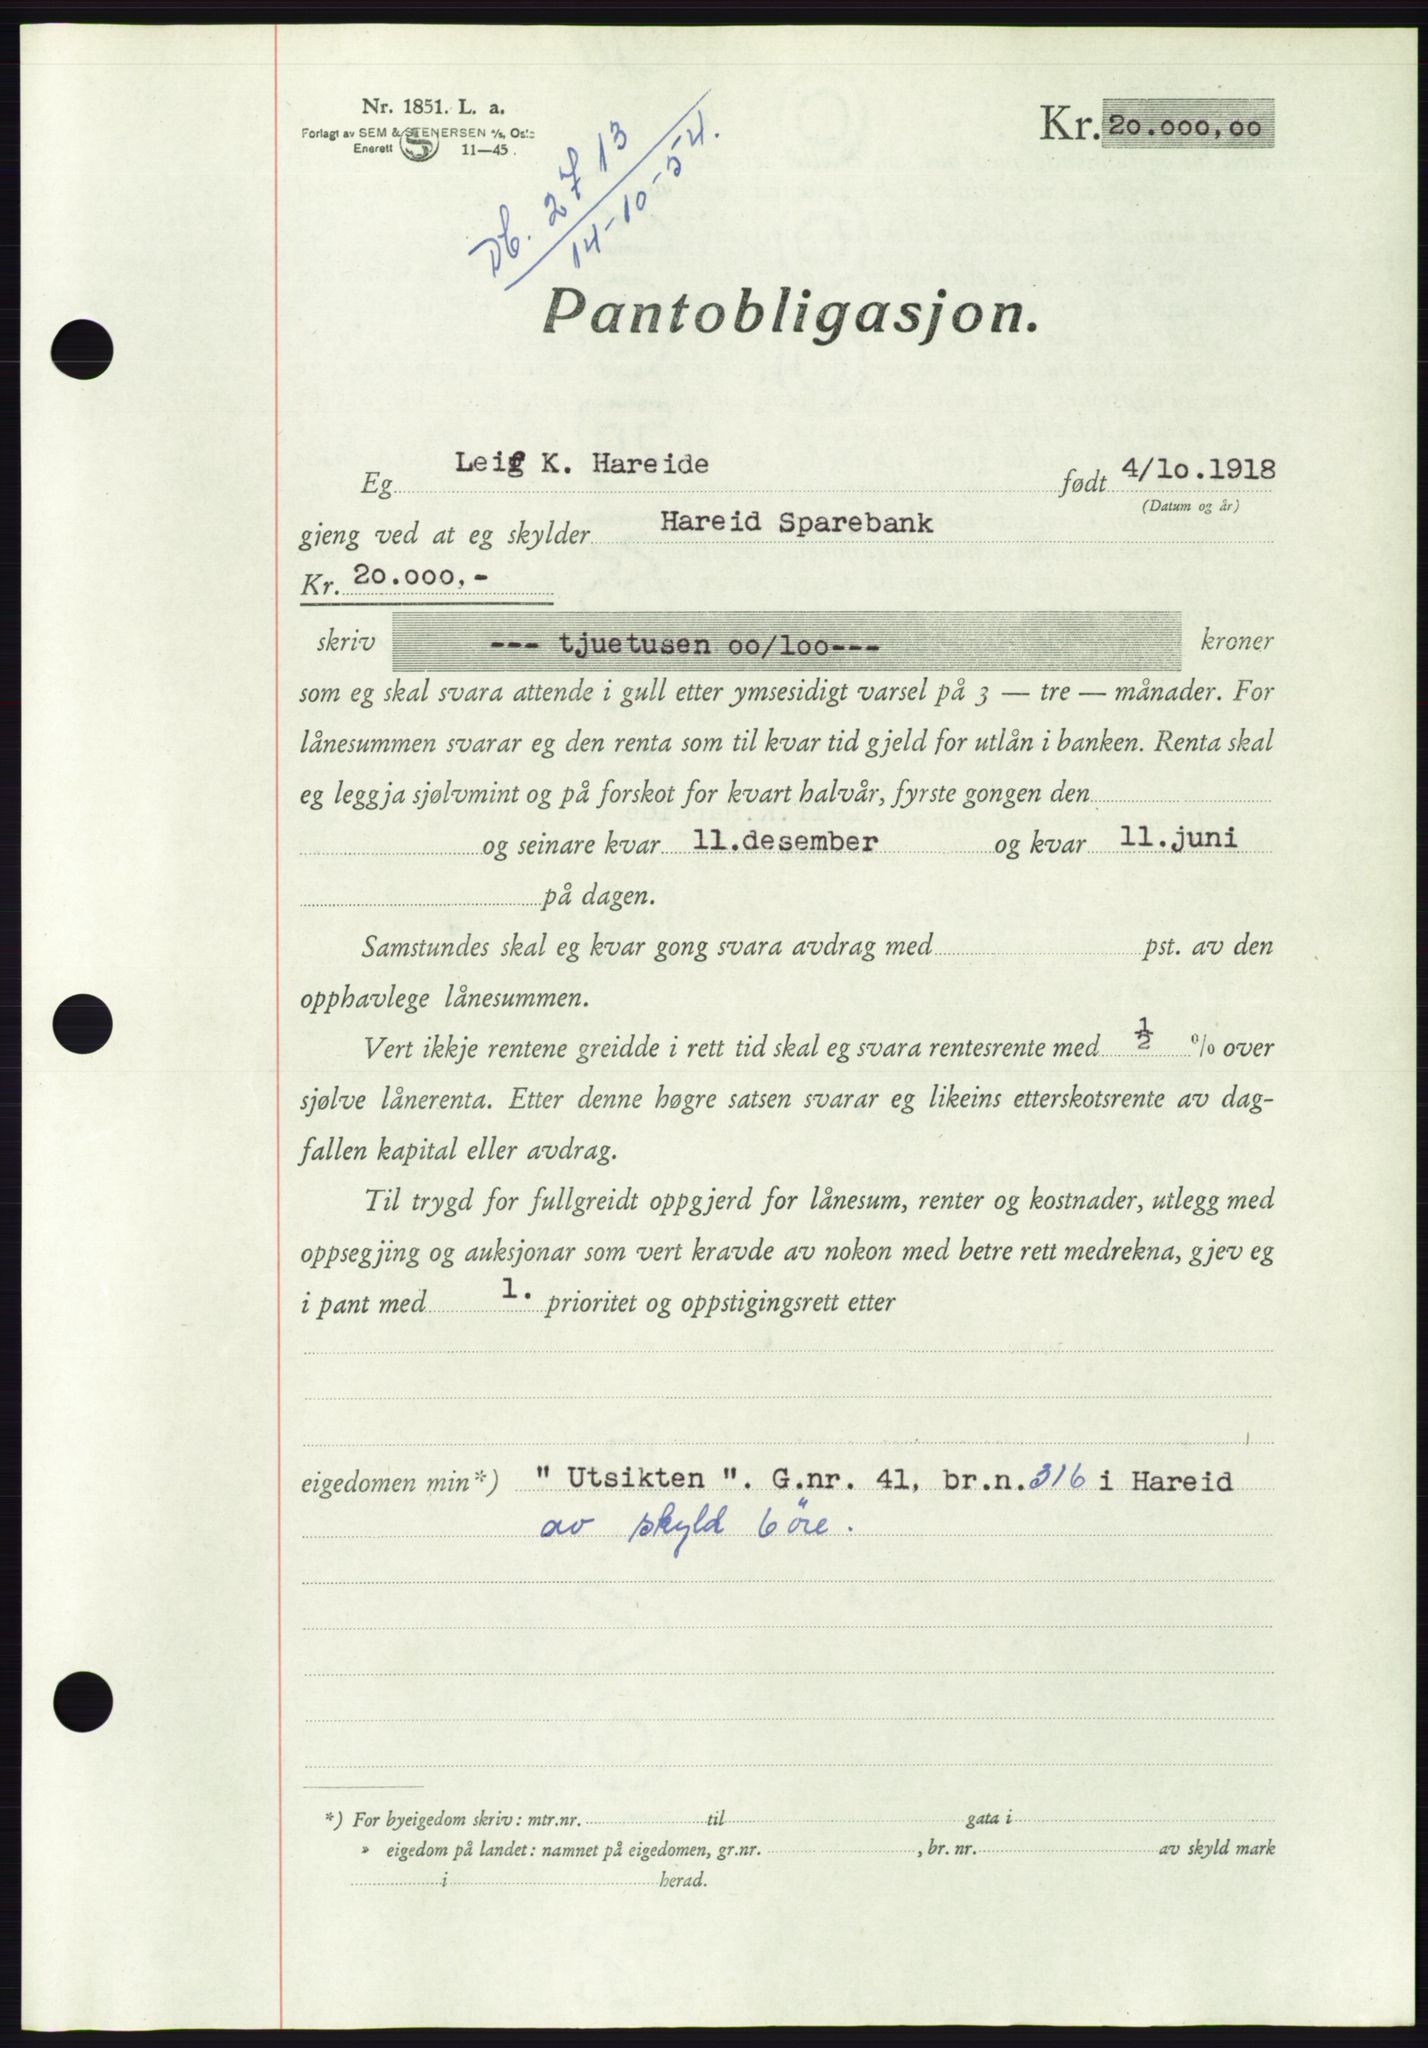 Nr. 1851. L. a.
Forlagt av SEM & STENERSEN A/S, Oslo
Enerett 11—45.
Db. 2713
14-10-54.
Kr. 20.000,00
Pantobligasjon.
Eg Leif K. Hareide født 4/10.1918
(Datum og år)
gjeng ved at eg skylder Hareid Sparebank
Kr. 20.000,-
skriv --- tjuetusen 00/100--- kroner
som eg skal svara attende i gull etter ymsesidigt varsel på 3 — tre — månader. For
lånesummen svarar eg den renta som til kvar tid gjeld for utlån i banken. Renta skal
eg leggja sjølvmint og på forskot for kvart halvår, fyrste gongen den
og seinare kvar 11.desember og kvar 11.juni
på dagen.
Samstundes skal eg kvar gong svara avdrag med pst. av den
opphavlege lånesummen.
Vert ikkje rentene greidde i rett tid skal eg svara rentesrente med ½ % over
sjølve lånerenta. Etter denne høgre satsen svarar eg likeins etterskotsrente av dag-
fallen kapital eller avdrag.
Til trygd for fullgreidt oppgjerd for lånesum, renter og kostnader, utlegg med
oppsegjing og auksjonar som vert kravde av nokon med betre rett medrekna, gjev eg
i pant med 1. prioritet og oppstigingsrett etter
eigedomen min*) " Utsikten ". G.nr. 41, br.n. 316 i Hareid
av skyld 6 öre.
*) For byeigedom skriv: mtr.nr. til gata i
» eigedom på landet: namnet på eigedomen, gr.nr. , br. nr. av skyld mark
i herad.